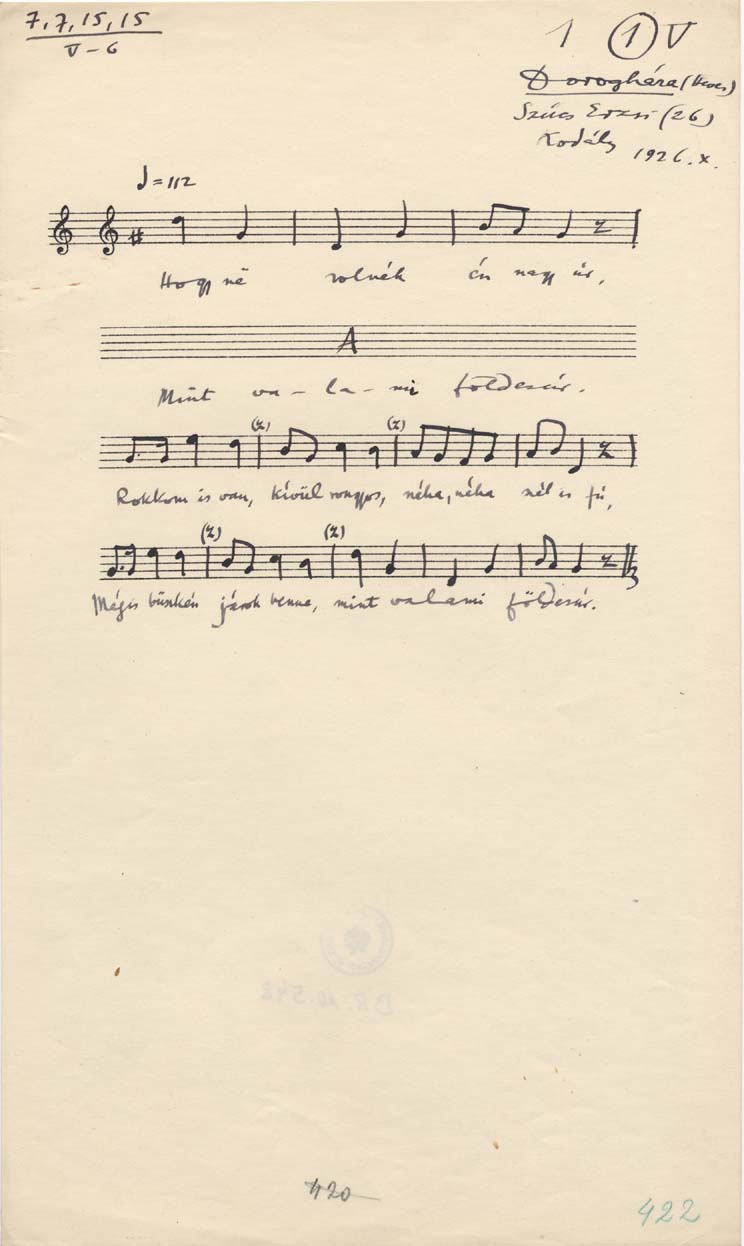 7, 7, 15, 15
V–6
1 1 V
Doroghára (Heves)
Szücs Erzsi (26)
Kodály 1926. X.
♩ = 112
Hogy né volnék én nagy úr,
A
Mint va – la – mi földesúr.
(𝄽) (𝄽)
Rokkom is van, kívül rongyos, néha, néha szél is fú,
(𝄽) (𝄽)
Mégis büszkén járok benne, mint valami földesúr.
BR. 10.542
420
422